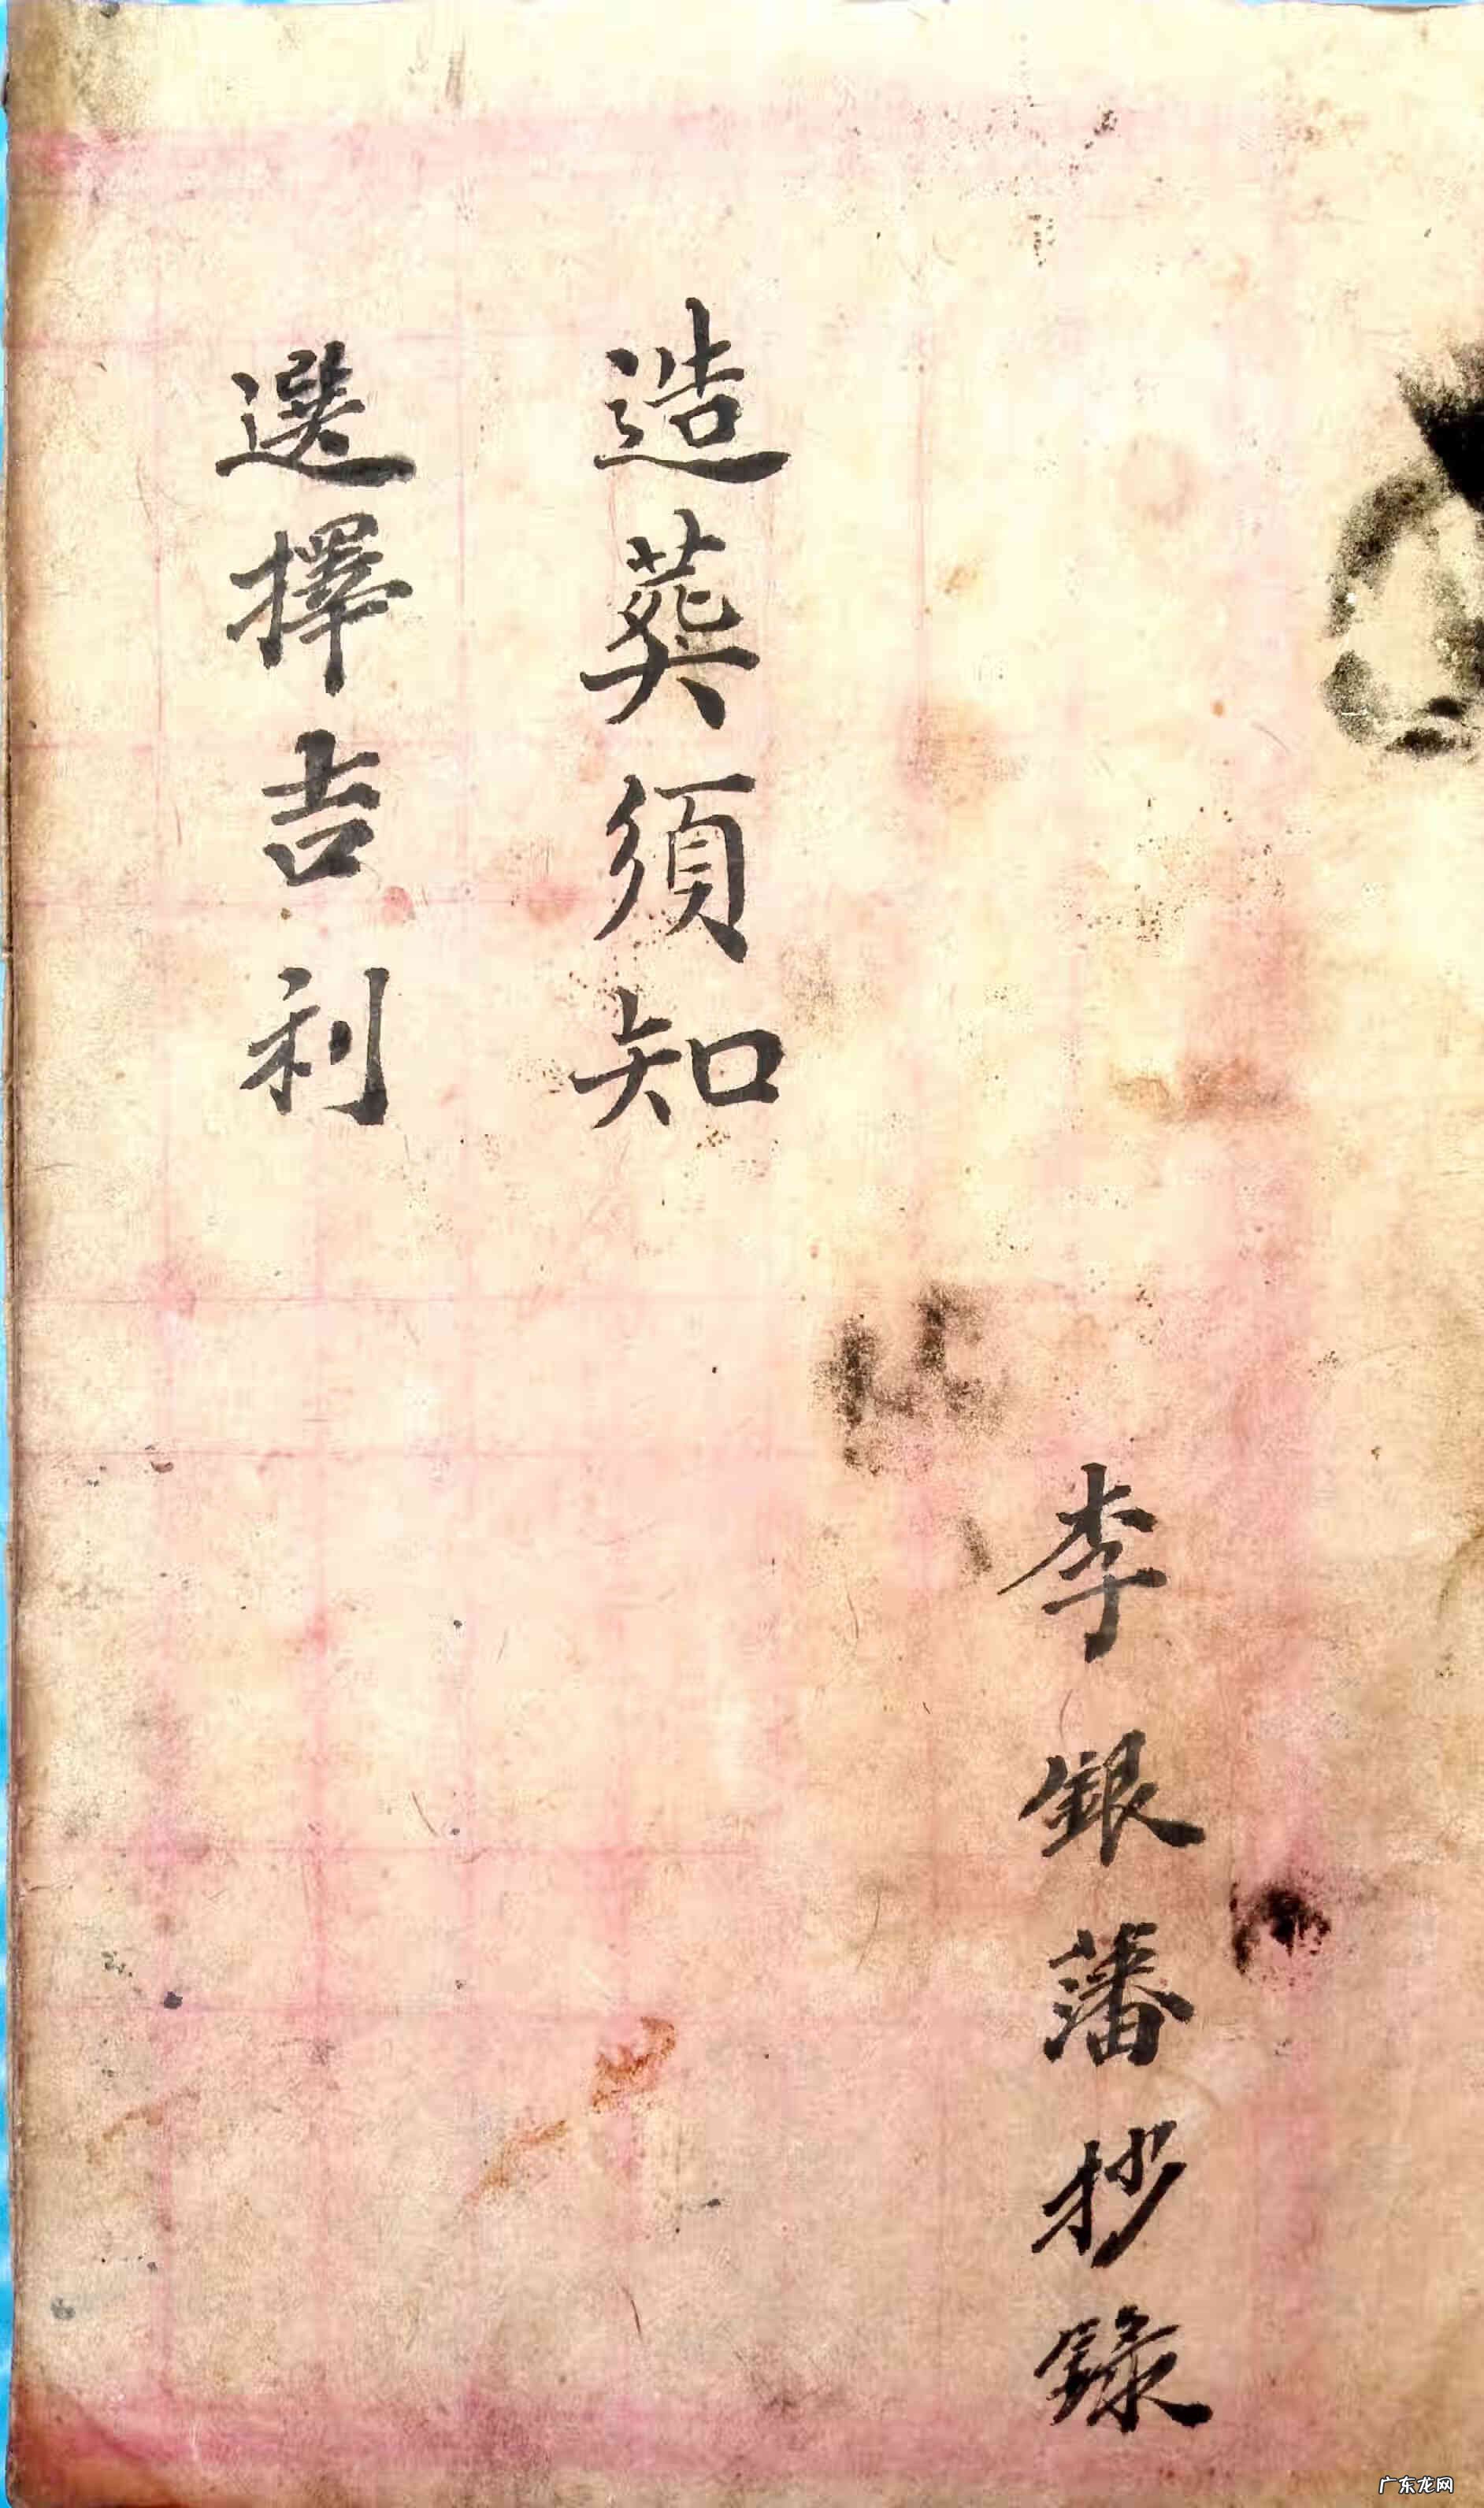 李銀藩抄錄
造葬須知
選擇吉利
广东龙网